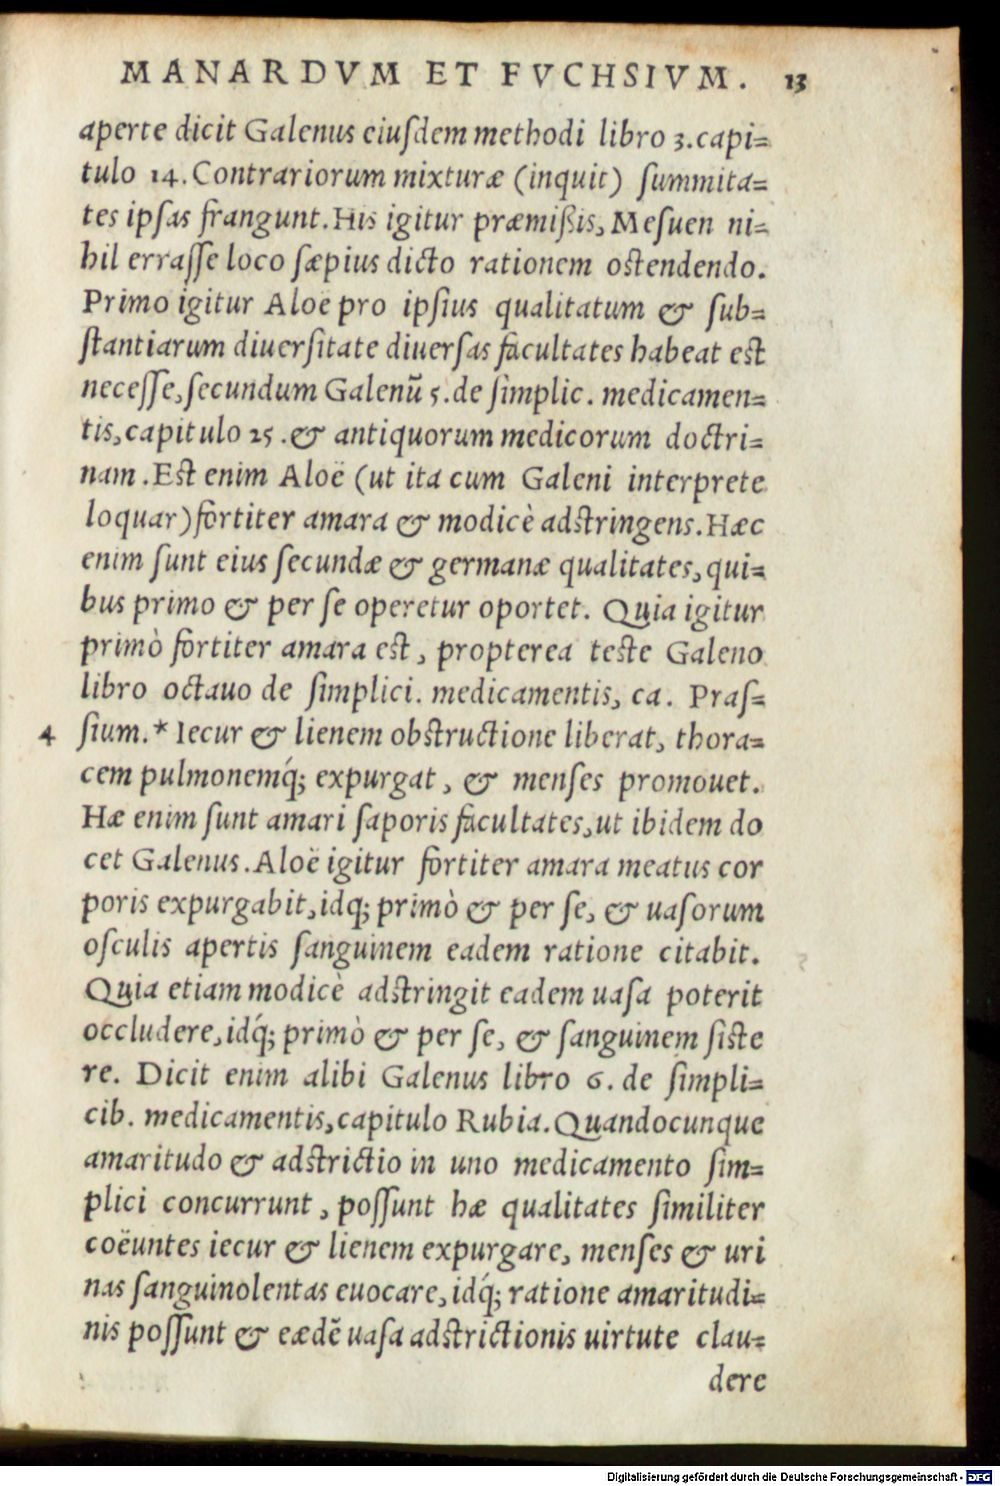 MANARDVM ET FVCHSIVM. 13
aperte dicit Galenus eiuſdem methodi libro 3. capi=
tulo 14. Contrariorum mixturæ (inquit) ſummita=
tes ipſas frangunt. His igitur præmißis, Meſuen ni=
hil erraſſe loco ſæpius dicto rationem oſtendendo.
Primo igitur Aloë pro ipſius qualitatum & ſub=
ſtantiarum diuerſitate diuerſas facultates habeat eſt
neceſſe, ſecundum Galenū 5. de ſimplic. medicamen=
tis, capitulo 25. & antiquorum medicorum doctri=
nam. Eſt enim Aloë (ut ita cum Galeni interprete
loquar) fortiter amara & modicè adſtringens. Hæc
enim ſunt eius ſecundæ & germanæ qualitates, qui=
bus primo & per ſe operetur oportet. Quia igitur
primò fortiter amara eſt, propterea teſte Galeno
libro octauo de ſimplici. medicamentis, ca. Praſ=
4 ſium.* Iecur & lienem obſtructione liberat, thora=
cem pulmonemq́; expurgat, & menſes promouet.
Hæ enim ſunt amari ſaporis facultates, ut ibidem do
cet Galenus. Aloë igitur fortiter amara meatus cor
poris expurgabit, idq; primò & per ſe, & uaſorum
oſculis apertis ſanguinem eadem ratione citabit.
Quia etiam modicè adſtringit eadem uaſa poterit
occludere, idq́; primò & per ſe, & ſanguinem ſiſte
re. Dicit enim alibi Galenus libro 6. de ſimpli=
cib. medicamentis, capitulo Rubia. Quandocunque
amaritudo & adſtrictio in uno medicamento ſim=
plici concurrunt, poſſunt hæ qualitates ſimiliter
coëuntes iecur & lienem expurgare, menſes & uri
nas ſanguinolentas euocare, idq́; ratione amaritudi=
nis poſſunt & eædē uaſa adſtrictionis uirtute clau=
dere
Digitalisierung gefördert durch die Deutsche Forschungsgemeinschaft - DFG